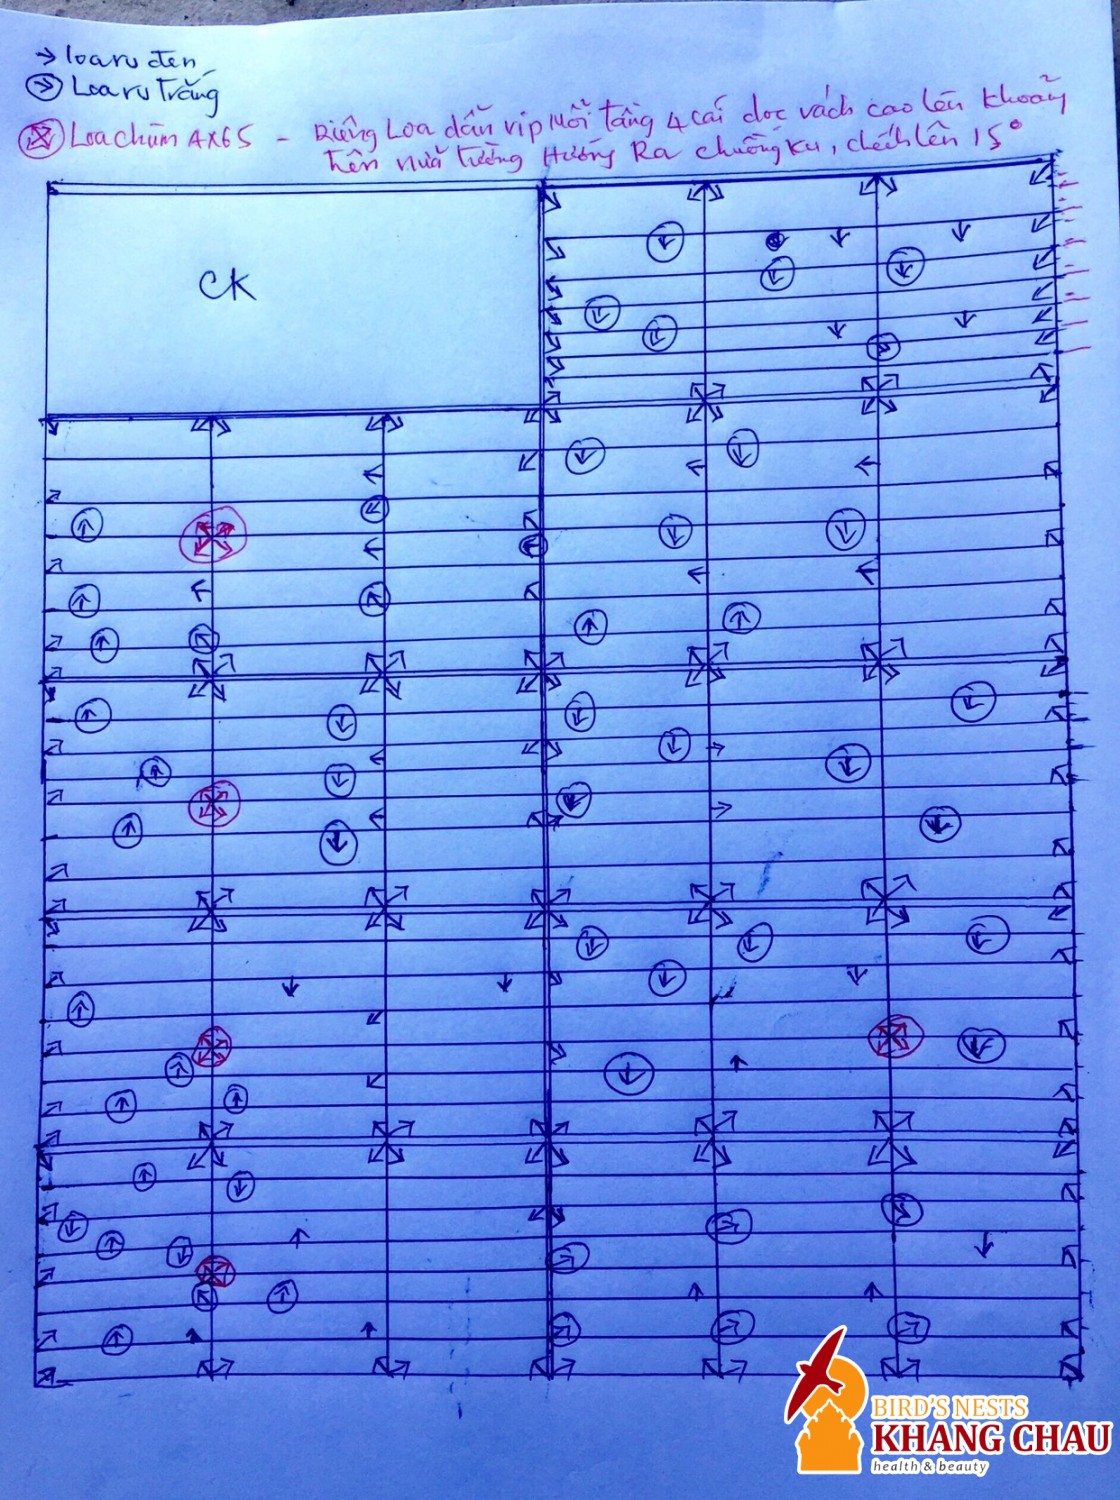 → loa ru đen
Loa ru trắng
Loa chùm AX65 - Riêng Loa dẫn vip Mỗi tầng 4 cái dọc vách cao lên khoảng
trên nửa tường Hướng Ra chuồng cu, chếch lên 15°
CK
BIRD'S NESTS
KHANG CHAU
health & beauty